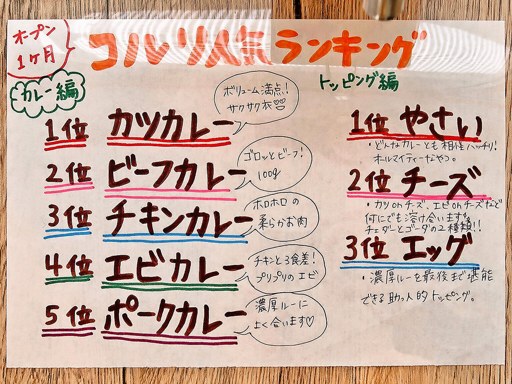 オープン
1ヶ月
コルリ人気ランキング
カレー編
1位 カツカレー
ボリューム満点!
サクサク衣
2位 ビーフカレー
ゴロッとビーフ!
100g
3位 チキンカレー
ホロホロの
柔らかお肉
4位 エビカレー
チキンと3食美!
プリプリのエビ
5位 ポークカレー
濃厚ルーに
よく合います♡
トッピング編
1位 やさい
・どんなカレーとも相性バッチリ!
オールマイティーなやつ。
2位 チーズ
・カツonチーズ、エビonチーズなど
何にでも溶け合います。
チェダーとゴーダの2種類!!
3位 エッグ
・濃厚ルーを最後まで堪能
できる助っ人的トッピング。